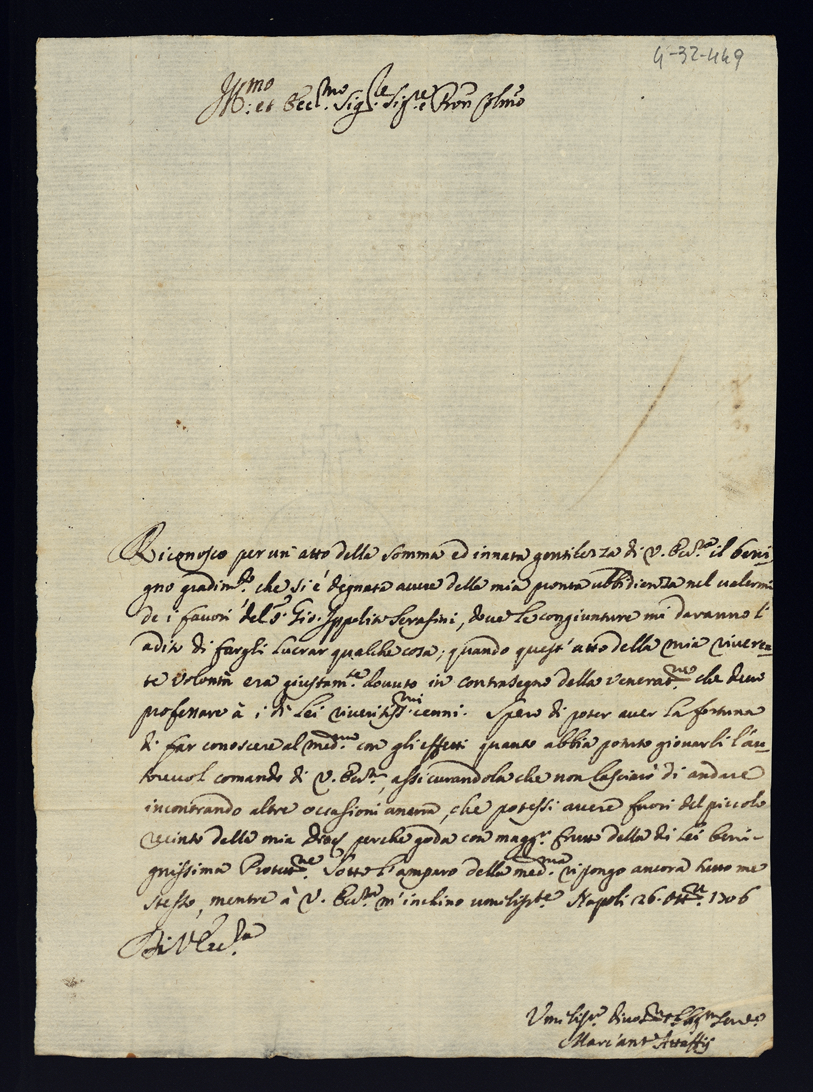 4-32-449
Ill.mo et Ecc.mo Sig.re Sig.re e Pron Colmo
Riconosco per un' atto della somma ed innata gentilezza di V. Ecc.za il beni-
gno gradim.to che si è degnata avere della mia pronta ubbidienza nel valermi
de i favori del S.r Gio. Ippolito Serafini, dove le congiunture mi daranno l'
adito di fargli lucrar qualche cosa; quando quest' atto della mia riveren-
te volontà era giustam.te dovuto in contrasegno della venerat.ne che devo
professare à i di Lei riveritiss.mi cenni. Spero di poter aver la fortuna
di far conoscere al med.mo con gli effetti quanto abbia potuto giovarli l'au-
torevol comando di V. Ecc.za, assicurandola che non lasciarò di andare
incontrando altre occasioni ancora, che potessi avere fuori del piccolo
recinto della mia perche goda con magg.r frutto della di Lei beni-
gnissima Protett.ne. Sotto l'amparo della med.ma ripongo ancora tutto me
stesso, mentre à V. Ecc.za m'inchino umiliss.te Napoli 26. Ott.re 1706
Di V. Ecc.za
Umiliss.o Divot.mo et Obl.mo Serv.e
Marc'ant.o Attaffij